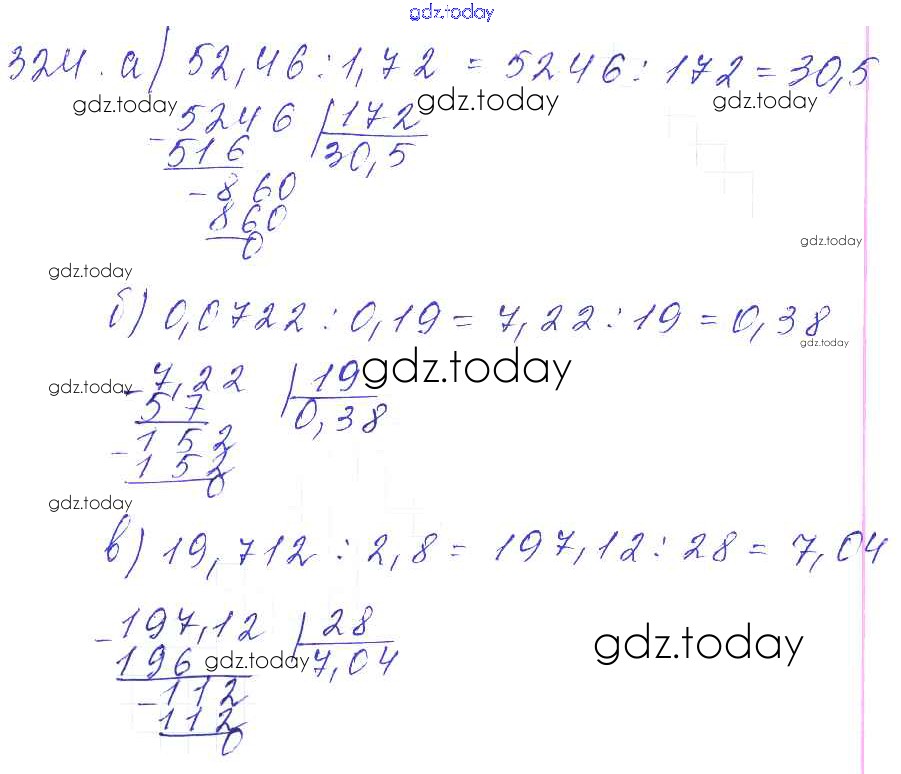 gdz.today
324. а) 52,46 : 1,72 = 5246 : 172 = 30,5
gdz.today gdz.today gdz.today
- 5246 | 172
516 30,5
- 860
860
0
gdz.today
gdz.today
б) 0,0722 : 0,19 = 7,22 : 19 = 0,38
gdz.today
gdz.today - 7,22 | 19 gdz.today
57 0,38
- 152
152
0
gdz.today
в) 19,712 : 2,8 = 197,12 : 28 = 7,04
- 197,12 | 28 gdz.today
196 gdz.today 7,04
- 112
112
0